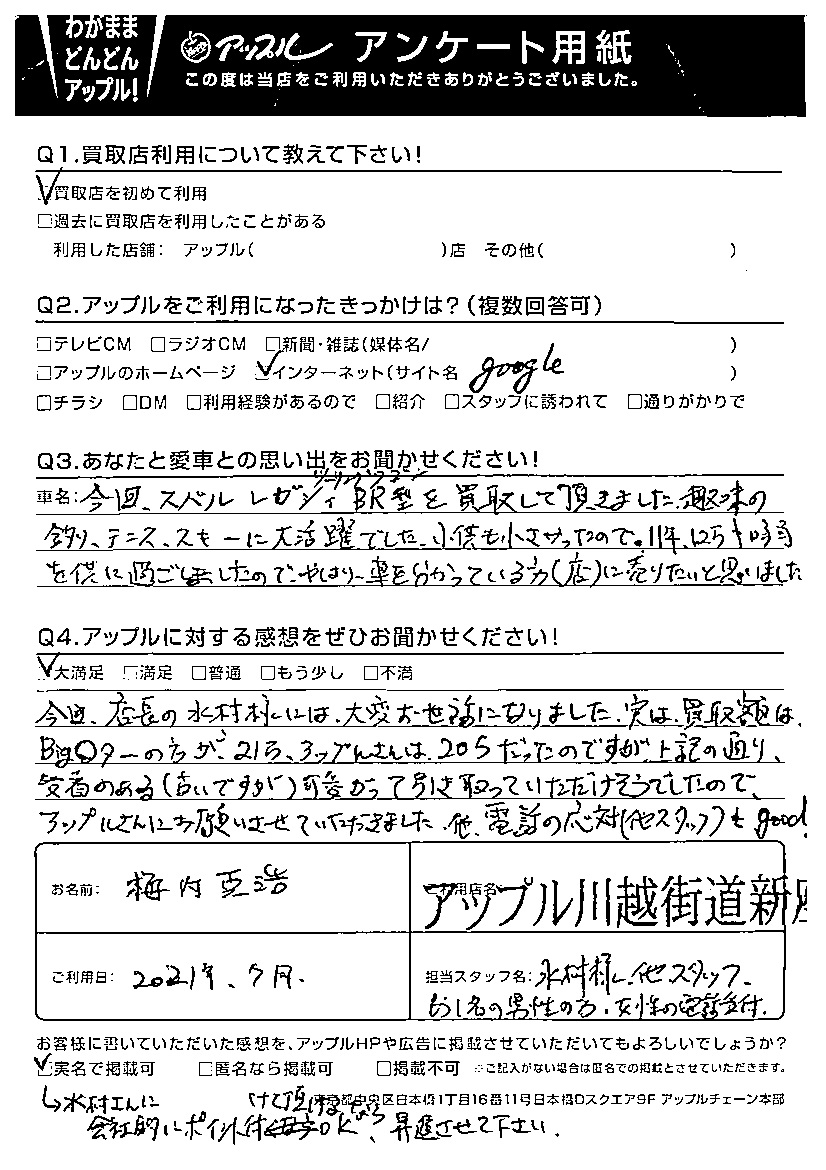 わがまま
どんどん
アップル!
アップル アンケート用紙
この度は当店をご利用いただきありがとうございました。
Q1.買取店利用について教えて下さい!
買取店を初めて利用
□過去に買取店を利用したことがある
利用した店舗: アップル( )店 その他( )
Q2.アップルをご利用になったきっかけは?(複数回答可)
□テレビCM □ラジオCM □新聞・雑誌(媒体名/ )
□アップルのホームページ インターネット(サイト名 google )
□チラシ □DM □利用経験があるので □紹介 □スタッフに誘われて □通りがかりで
Q3.あなたと愛車との思い出をお聞かせください!
ツーリングワゴン
車名:今回、スバル レガシィ BR型を買取して頂きました。趣味の
釣り、テニス、スキーに大活躍でした。小供も小さかったので。11年、12.5万キロ
を供に過ごしましたので、やはり、車を分かっている方(店)に売りたいと思いました
Q4.アップルに対する感想をぜひお聞かせください!
大満足 □満足 □普通 □もう少し □不満
今回、店長の水村様には、大変お世話になりました。実は、買取額は、
Bigの方が、21万、アップルさんは、20万だったのですが、上記の通り、
愛着のある(古いですが)可愛がって引き取っていただけそうでしたので、
アップルさんにお願いさせていただきました。他、電話の応対(他スタッフ)も good!
お名前: 梅内 克浩
ご利用店名
アップル川越街道新座
ご利用日: 2021年、7月.
担当スタッフ名: 水村様、他スタッフ、
もう1名の男性の方、女性の電話受付.
お客様に書いていただいた感想を、アップルHPや広告に掲載させていただいてもよろしいでしょうか?
実名で掲載可 □匿名なら掲載可 □掲載不可 ※ご記入がない場合は匿名での掲載とさせていただきます。
東京都中央区日本橋1丁目16番11号日本橋Dスクエア9F アップルチェーン本部
↳水村さんに けて頂けるなら
会社的にポイント付 OK、昇進させて下さい.